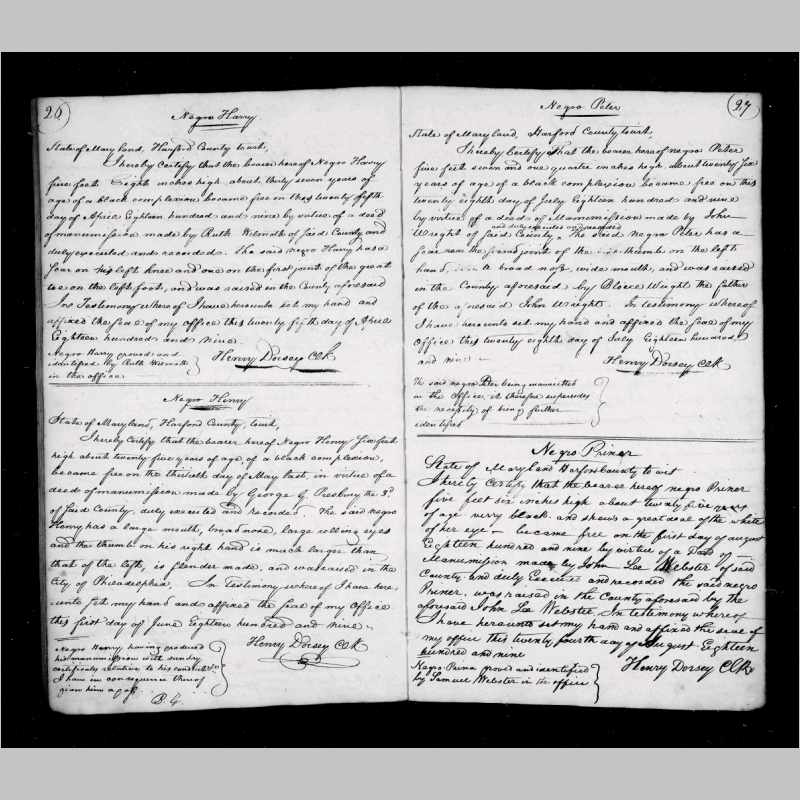 26
Negro Harry
State of Maryland, Harford County to wit,
I hereby Certify that the bearer hereof Negro Harry
five feet Eight inches high about thirty seven years of
age of a black complexion became free on the twenty fifth
day of April Eighteen hundred and nine by virtue of a deed
of manumission made by Ruth Wilmoth of said County and
duly executed and recorded. The said negro Harry has a
scar on his left knee and one on the first joint of the great
toe on the left foot, and was raised in the County aforesaid
In Testimony whereof I have hereunto set my hand and
affixed the seal of my office this twenty fifth day of April
Eighteen hundred and nine.
Negro Harry proved and
identified by Ruth Wilmoth
in the office
Henry Dorsey Clk
Negro Henry
State of Maryland, Harford County, to wit,
I hereby Certify that the bearer hereof Negro Henry five feet
high about twenty five years of age, of a black complexion,
became free on the thirtieth day of May last, in virtue of a
deed of manumission made by George G Presbury the 3d.
of said County, duly executed and recorded. The said negro
Henry has a large mouth, broad nose, large rolling eyes
and the thumb on his right hand is much larger than
that of the left, is slender made, and was raised in the
City of Philadelphia. In Testimony whereof I have here,
unto set my hand and affixed the seal of my Office
this first day of June Eighteen hundred and nine.
Negro Henry having produced
his manumission with sundry
certificates relative to his conduct
I have in consequence thereof
given him a pass.
Henry Dorsey Clk
27
Negro Peter
State of Maryland, Harford County to wit,
I hereby Certify that the bearer hereof negro Peter
five feet seven and one quarter inches high about twenty six
years of age of a black complexion became free on this
twenty eighth day of July Eighteen hundred and nine
by virtue of a deed of Manumission made by John
and duly executed and recorded
Wright of said County, The said negro Peter has a
scar near the joint of the thumb on the left
hand, broad nose, wide mouth, and was raised
in the County aforesaid by Wright the father
of the aforesaid John Wright. In testimony whereof
I have hereunto set my hand and affixed the seal of my
Office this twenty eighth day of July Eighteen hundred
and nine
Henry Dorsey Clk
The said negro Peter being manumitted
in the Office, it therefore supersedes
the necessity of being further
identified
Negro Primer
State of Maryland Harford County to wit
I hereby Certify that the bearer hereof negro Primer
five feet six inches high about twenty five years
of age very black and shews a great deal of the white
of her eye - became free on the first day of august
Eighteen hundred and nine by virtue of a Deed of
Manumission made by John Lee Webster of said
County, and duly Executed and recorded the said negro
Primer, was raised in the County aforesaid by the
aforesaid John Lee Webster. In testimony whereof
I have hereunto set my hand and affixed the seal of
my office this twenty fourth day of August Eighteen
hundred and nine
Henry Dorsey Clk
Negro Primer proved and identified
by Samuel Webster in the office